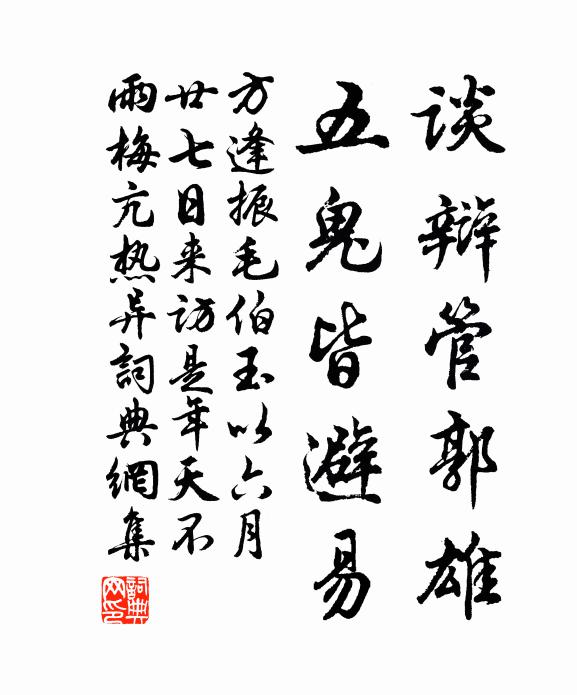 談辯管郭雄
五鬼皆避易
方逢振毛伯玉以六月
廿七日来访是年天不
雨梅亢热异詞典網集
詞典网印